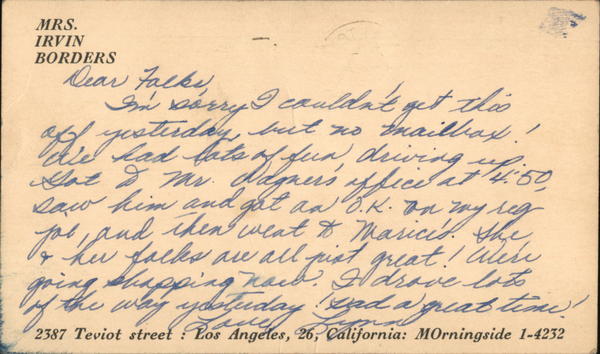 MRS.
IRVIN
BORDERS
Dear Folks,
I'm sorry I couldn't get this
off yesterday, but no mailbox!
We had lots of fun, driving up.
Got to Mr. Wagner's office at 4:50,
saw him and got an O.K. on my reg
job, and then went to Marcie's. She
& her folks are all just great! We're
going shopping now. I drove lots
of the way yesterday! Had a great time!
Love, Lynn
2387 Teviot street : Los Angeles, 26, California: MOrningside 1-4232